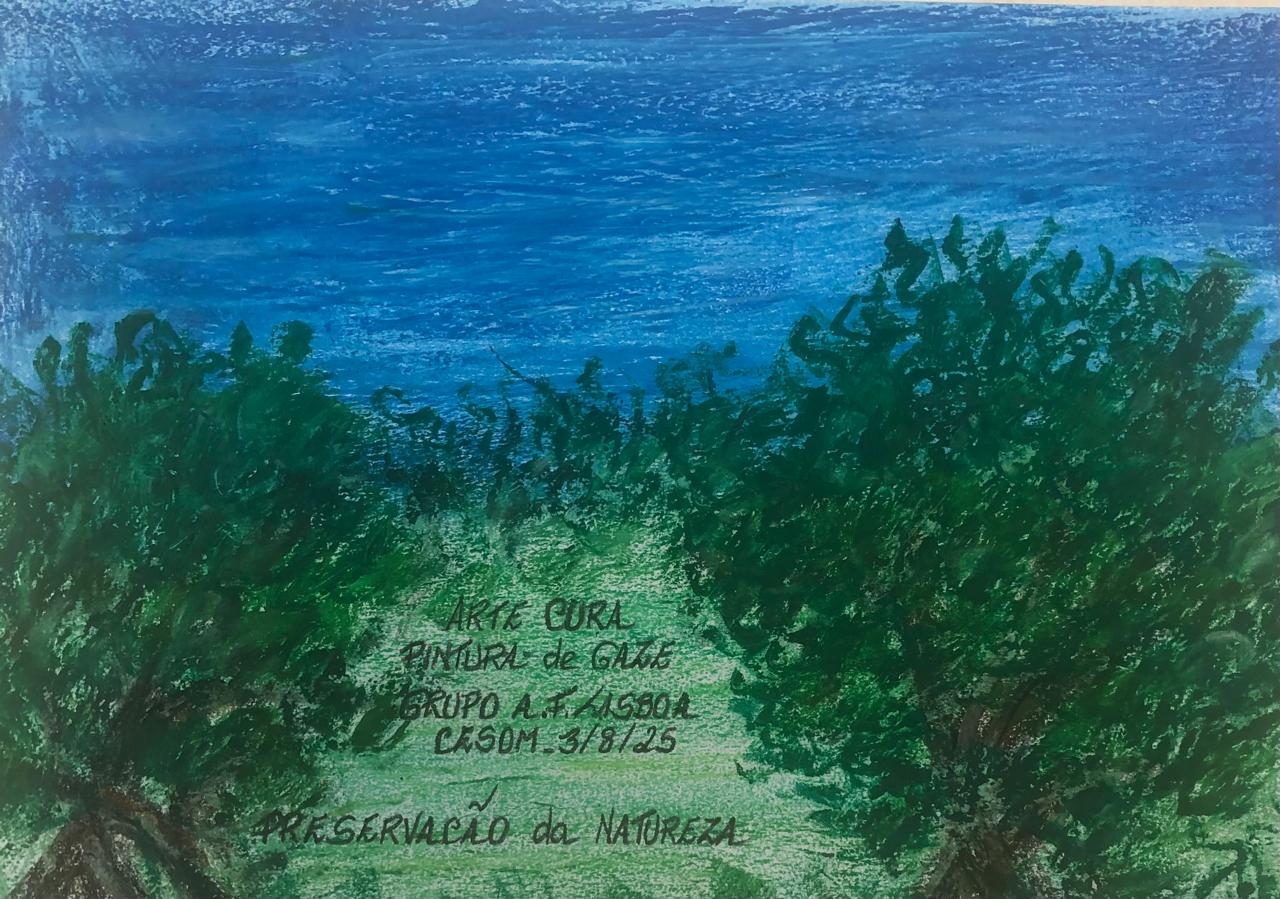 ARTE CURA
PINTURA de GAZE
GRUPO A.F. LISBOA
CESOM_3/8/25
PRESERVAÇÃO da NATUREZA